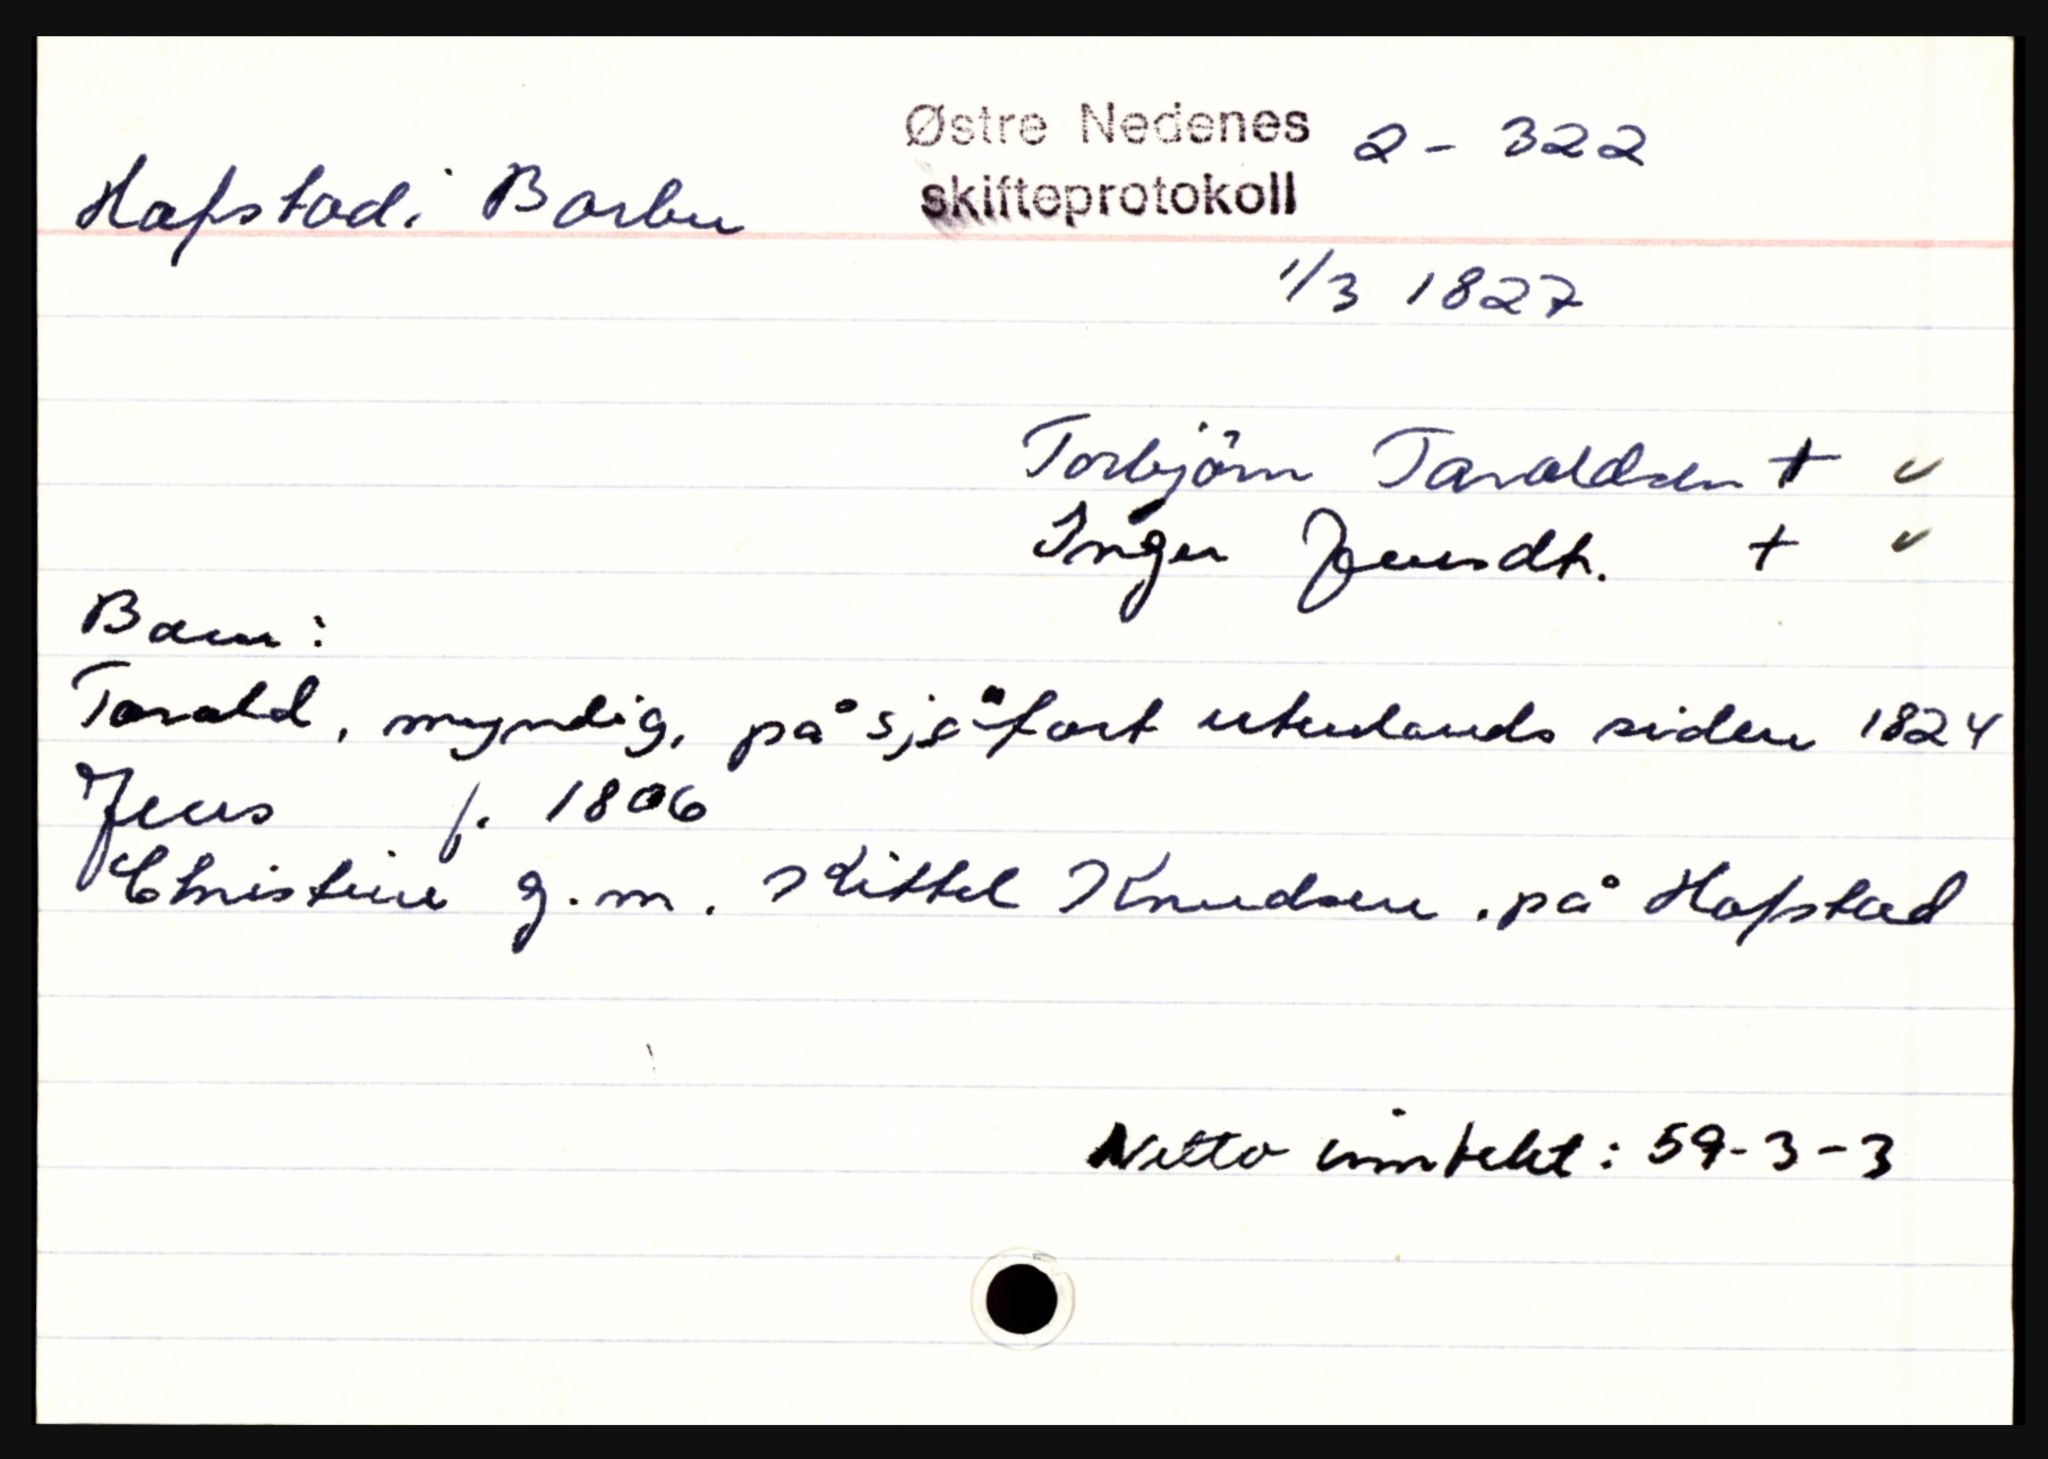 Østre Nedenes 2 - 322
Hafstad i Barbu skifteprotokoll
1/3 1827
Torbjörn Taraldsen + v
Inger Jensdt. + v
Barn:
Tarald, myndig, på sjöfart utenlands siden 1824
Jens f. 1806
Christine g.m. Kittel Knudsen. på Hafstad
Netto inntekt: 59-3-3